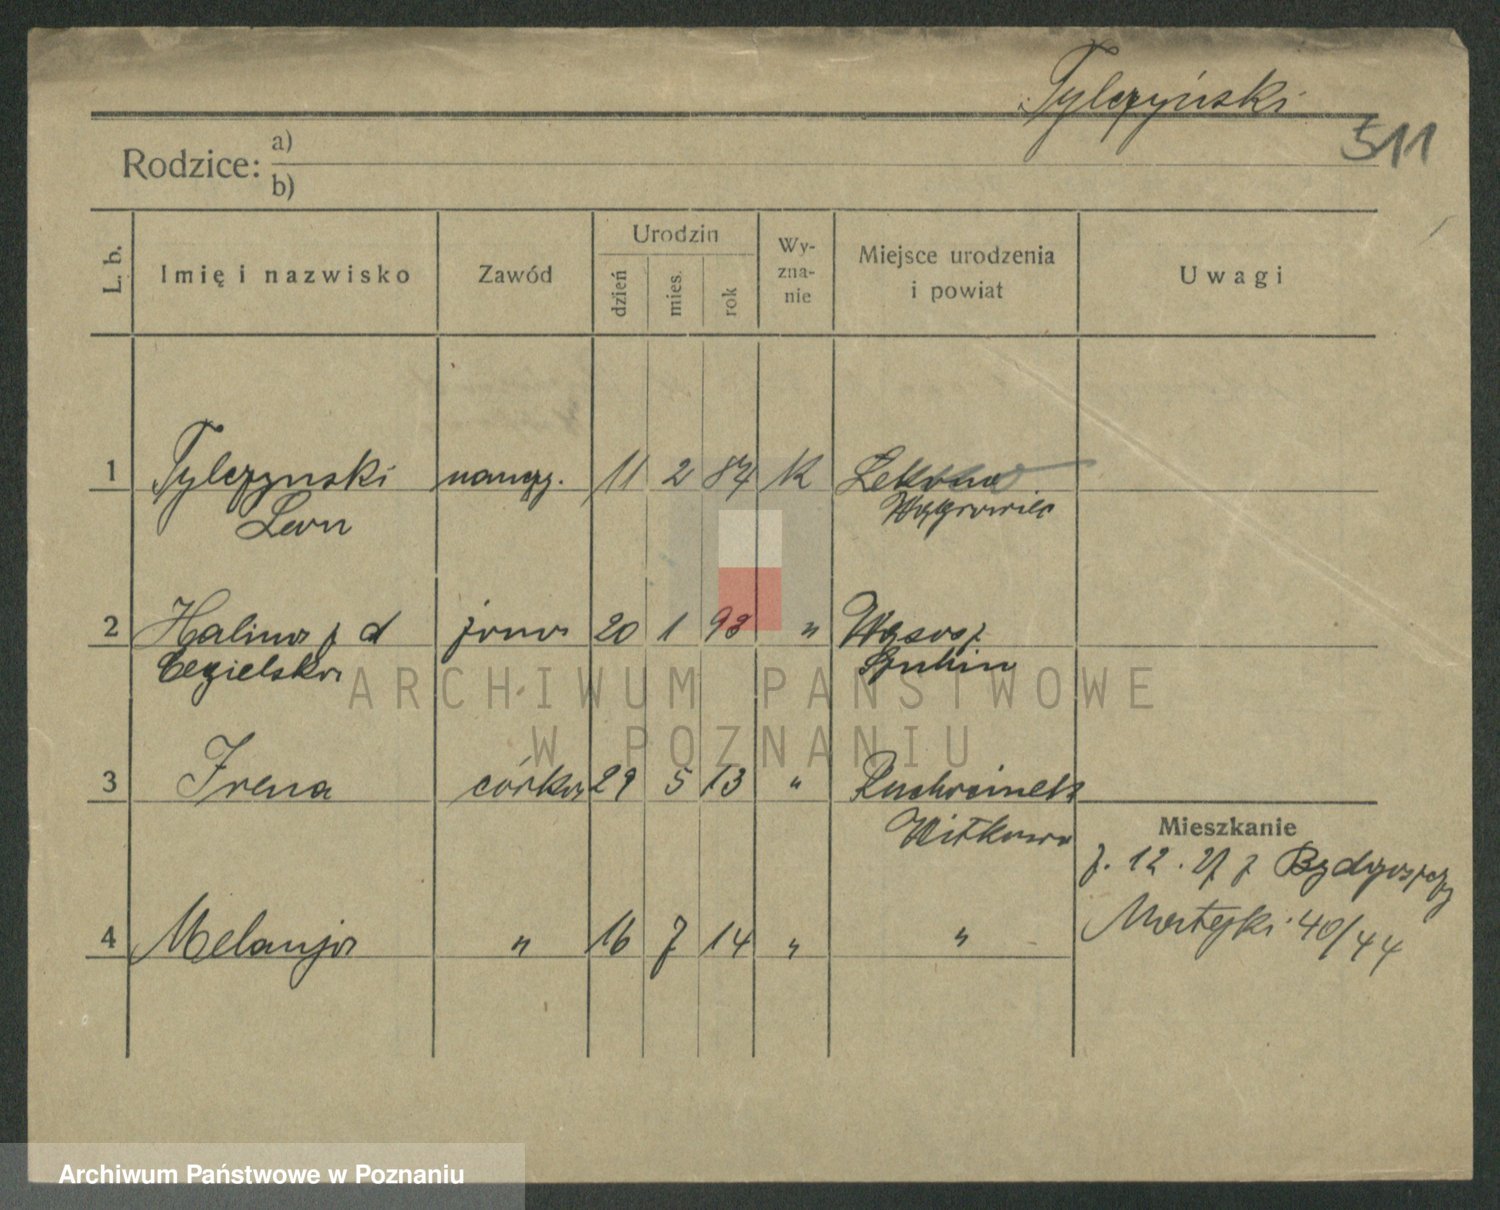 Tylczyński
511
Rodzice: a)
b)
L. b.
Imię i nazwisko
Zawód
Urodzin
dzień
mies.
rok
Wy-
zna-
nie
Miejsce urodzenia
i powiat
Uwagi
1 Tylczynski naucz. 11 2 87 K Lekno
Leon Wągrowiec
2 Halina z d żona 20 1 93 " Wąsosz
Cegielska Szubin
3 Irena córka 29 5 13 " Ruchocinek
Witkowo
Mieszkanie
12. 27 z Bydgoszczy
4 Melanja " 16 7 14 " "
Matejki 40/44
ARCHIWUM PAŃSTWOWE
W POZNANIU
Archiwum Państwowe w Poznaniu